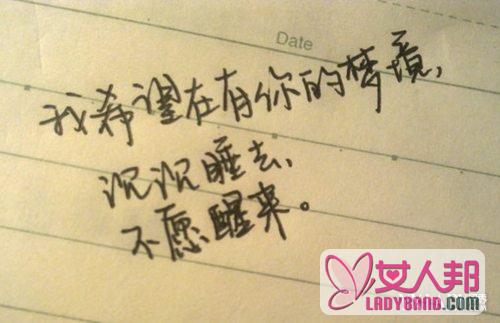 Date
我希望在有你的梦境,
沉沉睡去、
不愿醒来。
女人邦
LADYBAND.COM